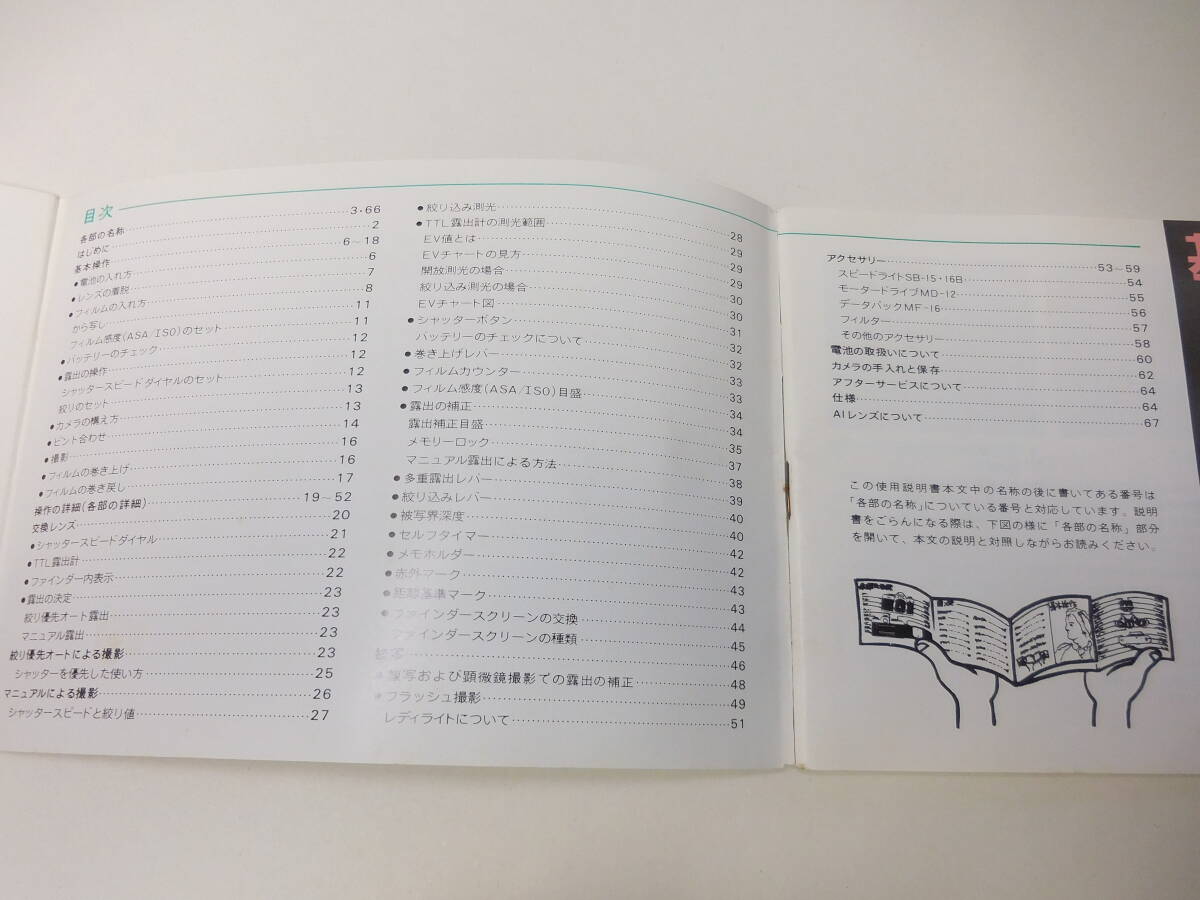 目次
各部の名称 3・66
はじめに 2
基本操作 6〜18
●電池の入れ方 6
●レンズの着脱 7
●フィルムの入れ方 8
から写し 11
フィルム感度(ASA/ISO)のセット 11
●バッテリーのチェック 12
●露出の操作 12
シャッタースピードダイヤルのセット 12
絞りのセット 13
●カメラの構え方 13
●ピント合わせ 14
●撮影 16
●フィルムの巻き上げ 16
●フィルムの巻き戻し 17
操作の詳細(各部の詳細) 19〜52
交換レンズ 20
●シャッタースピードダイヤル 21
●TTL露出計 22
●ファインダー内表示 22
●露出の決定 23
絞り優先オート露出 23
マニュアル露出 23
絞り優先オートによる撮影 23
シャッターを優先した使い方 25
マニュアルによる撮影 26
シャッタースピードと絞り値 27
●絞り込み測光 28
●TTL露出計の測光範囲 29
EV値とは 29
EVチャートの見方 29
開放測光の場合 30
絞り込み測光の場合 30
EVチャート図 31
●シャッターボタン 32
バッテリーのチェックについて 32
●巻き上げレバー 33
●フィルムカウンター 33
●フィルム感度(ASA/ISO)目盛 34
●露出の補正 34
露出補正目盛 35
メモリーロック 37
マニュアル露出による方法 38
●多重露出レバー 39
●絞り込みレバー 40
●被写界深度 40
●セルフタイマー 42
●メモホルダー 42
●赤外マーク 43
●距離基準マーク 43
●ファインダースクリーンの交換 44
ファインダースクリーンの種類 45
接写 46
●複写および顕微鏡撮影での露出の補正 48
●フラッシュ撮影 49
レディライトについて 51
アクセサリー 53〜59
スピードライトSB-15・16B 54
モータードライブMD-12 55
データバックMF-16 56
フィルター 57
その他のアクセサリー 58
電池の取扱いについて 60
カメラの手入れと保存 62
アフターサービスについて 64
仕様 64
AIレンズについて 67
この使用説明書本文中の名称の後に書いてある番号は
「各部の名称」についている番号と対応しています。説明
書をごらんになる際は、下図の様に「各部の名称」部分
を開いて、本文の説明と対照しながらお読みください。